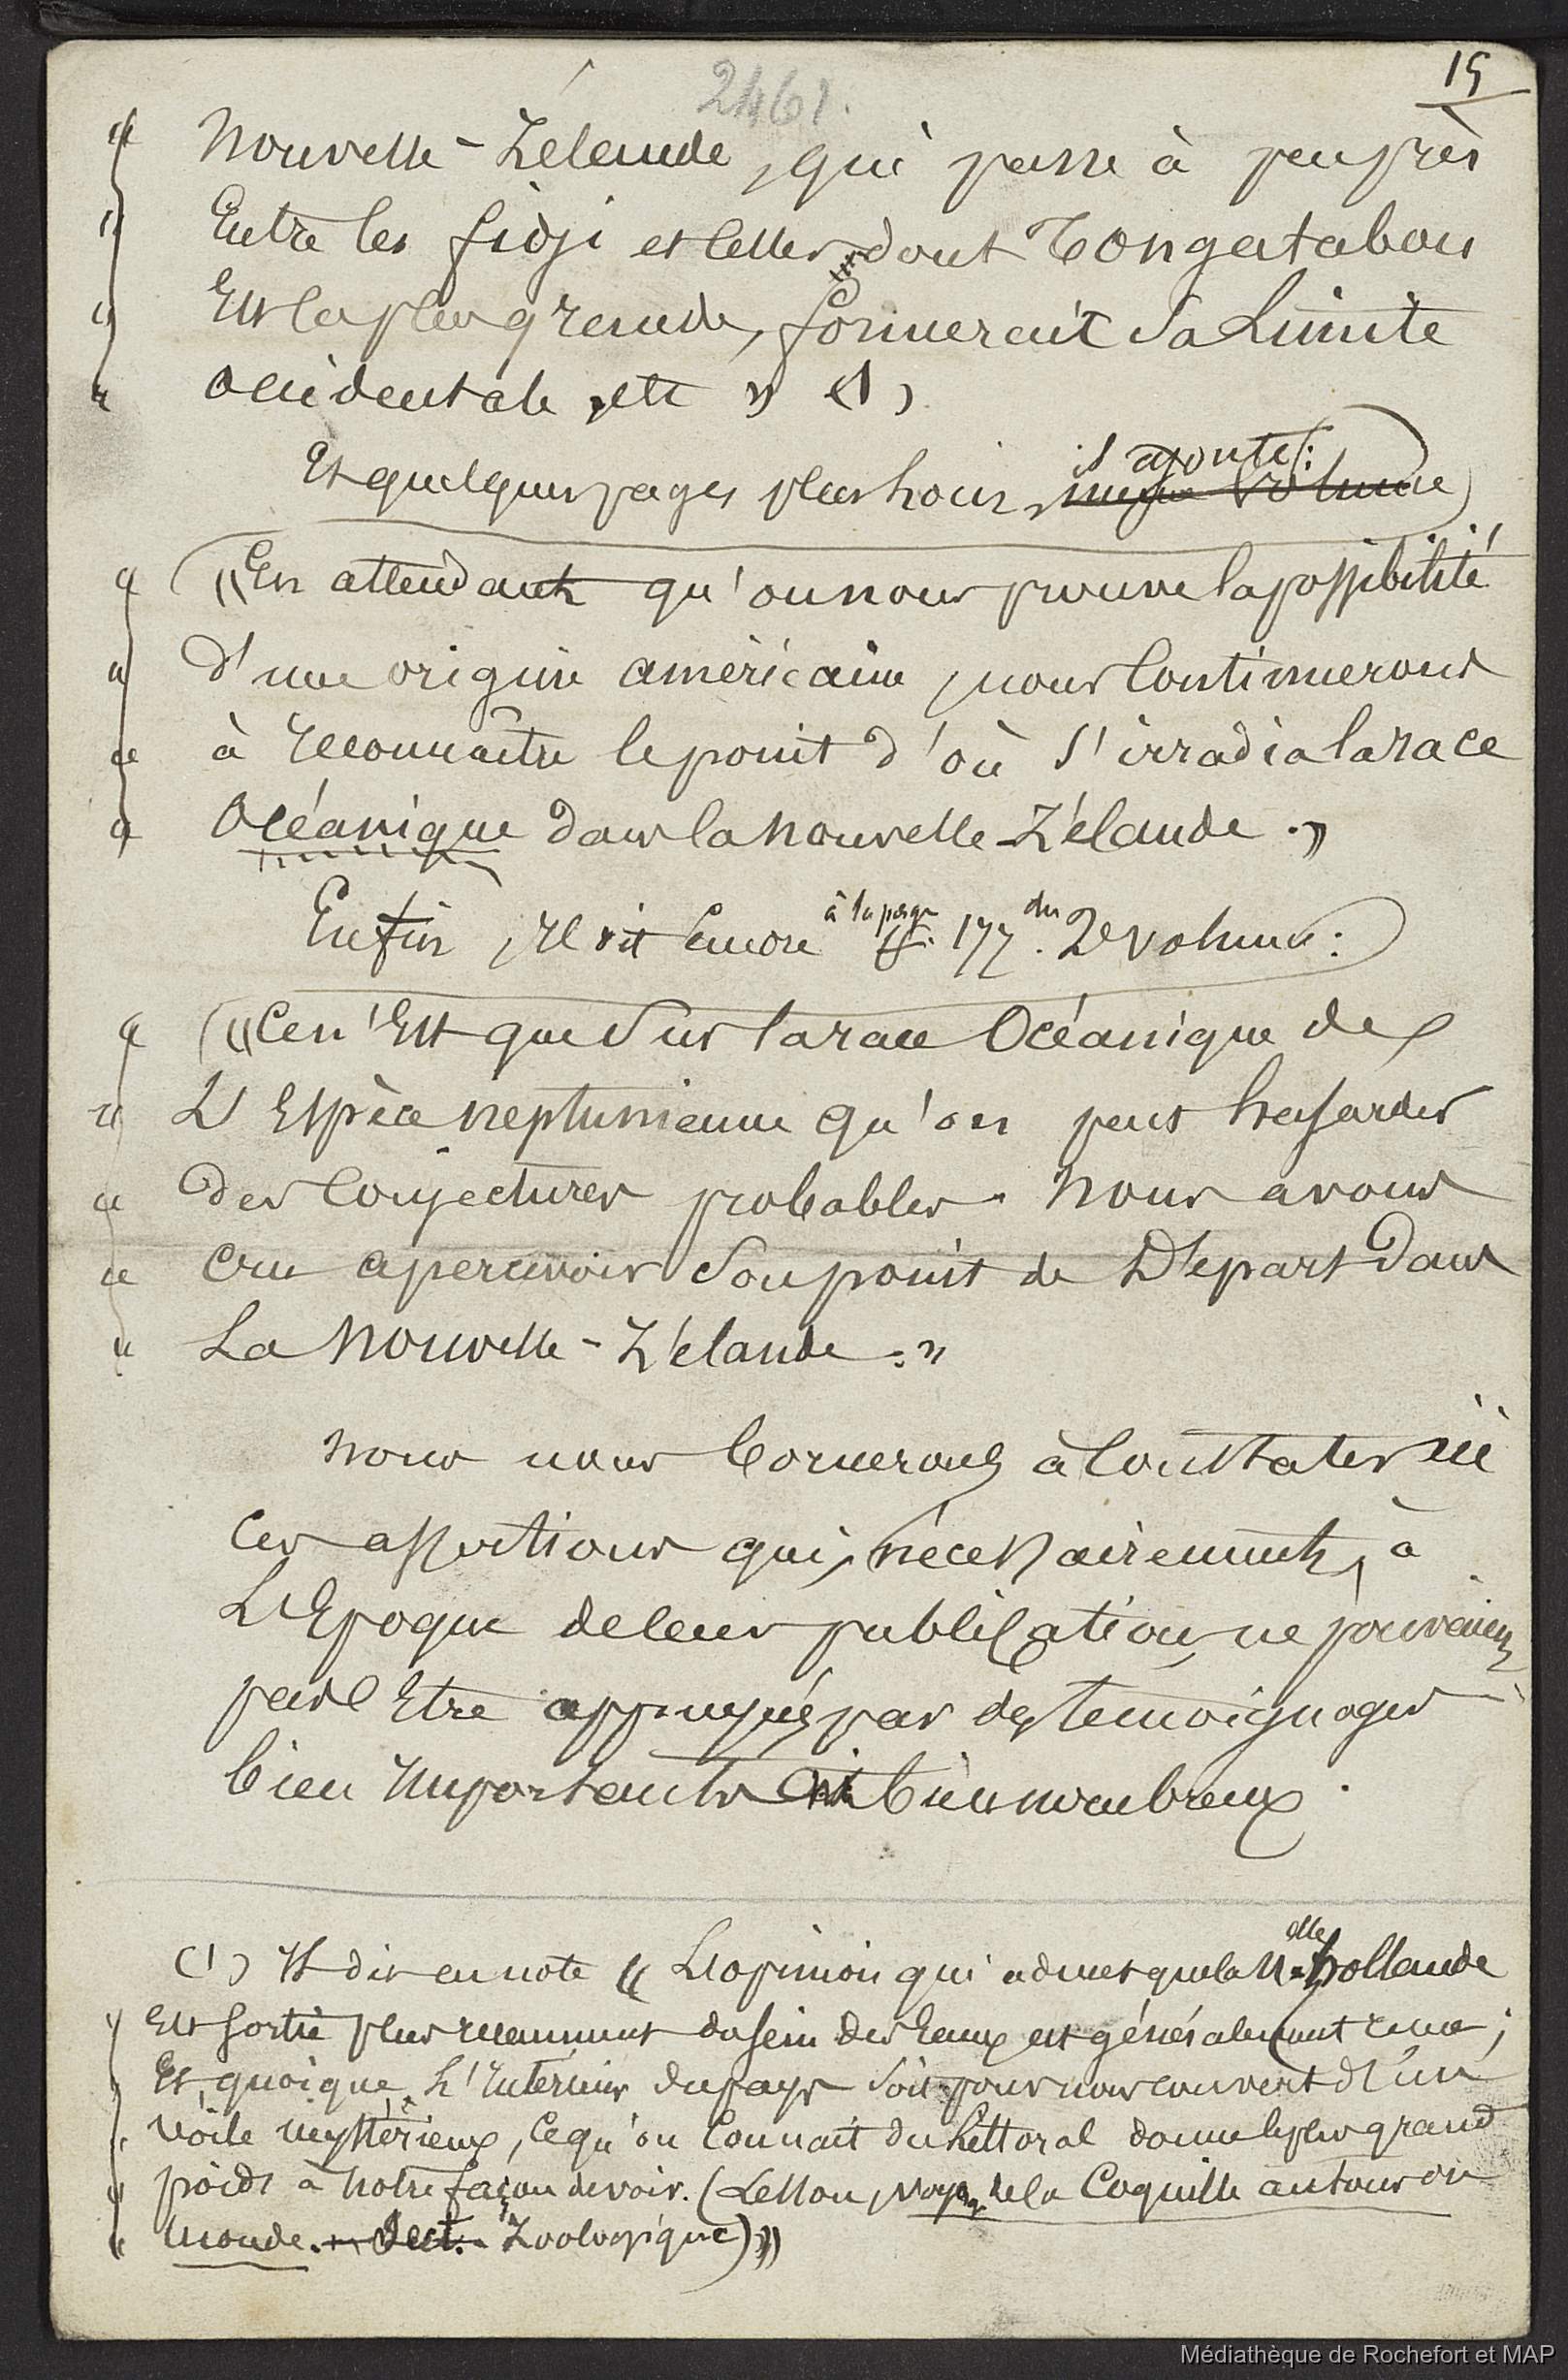 2461.
15
" Nouvelle-Zélande, qui passe à peu près
" Entre les fidji et celles dont Tongatabou
" Est la plus grande, formerait sa Limite
" occidentale, etc » (1)
il ajoute:
Et quelques pages plus loin, même volume
" « En attendant qu'on nous prouve la possibilité
" d'une origine américaine, nous Continuerons
" à reconnaître le point d'où s'irradia la race
" Océanique dans la nouvelle-Zélande. »
à la page du
Enfin, Il dit Encore 177. 2e volume:
" « Ce n'Est que sur la race Océanique de
" L'Espèce neptunienne qu'on peut hasarder
" des Conjectures probables. Nous avons
" cru apercevoir Son point de Départ dans
" La Nouvelle-Zélande. »
Nous nous bornerons à Constater ici
ces assertions qui, nécessairement, à
L'Epoque de leur publication, ne pouvaient
pas Etre appuyées par des temoignages
bien Importants bien nombreux.
(1) Il dit en note « L'opinion qui admet que la N.elle hollande
" Est sortie plus récemment du sein des Eaux est généralement reçue;
" Et, quoique L'Intérieur du pays soit pour nous couvert d'un
" voile mystérieux, ce qu'on Connait du Littoral donne le plus grand
" poids à notre façon de voir. (Lesson, voyage de la Coquille autour du
" monde. - Sect. Zoologique) »
Médiathèque de Rochefort et MAP